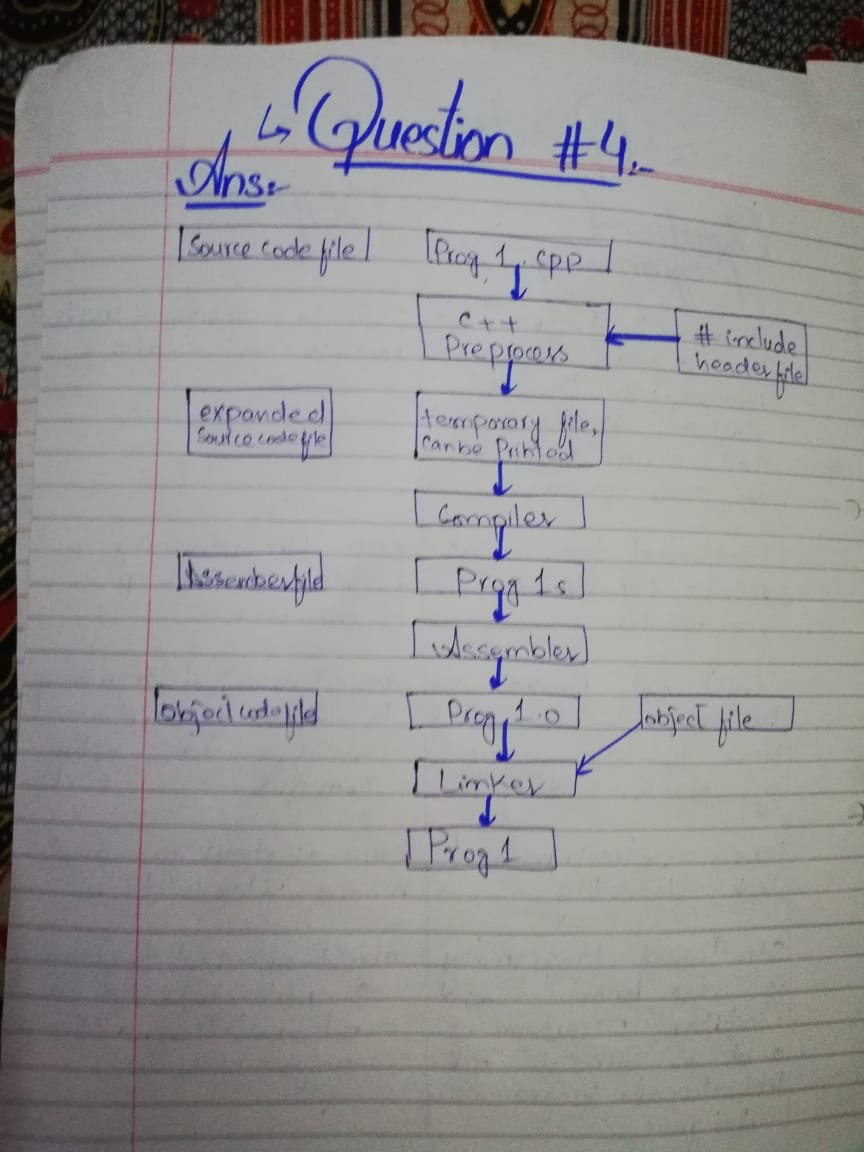 ↳ Question #4.-
Ans:-
Source code file
Prog 1. cpp
C++
Preprocess
# include
header file
expanded
source code file
temporary file,
can be Printed
Compiler
Prog 1s
Assembler
Prog 1.0
object file
Linker
Prog 1